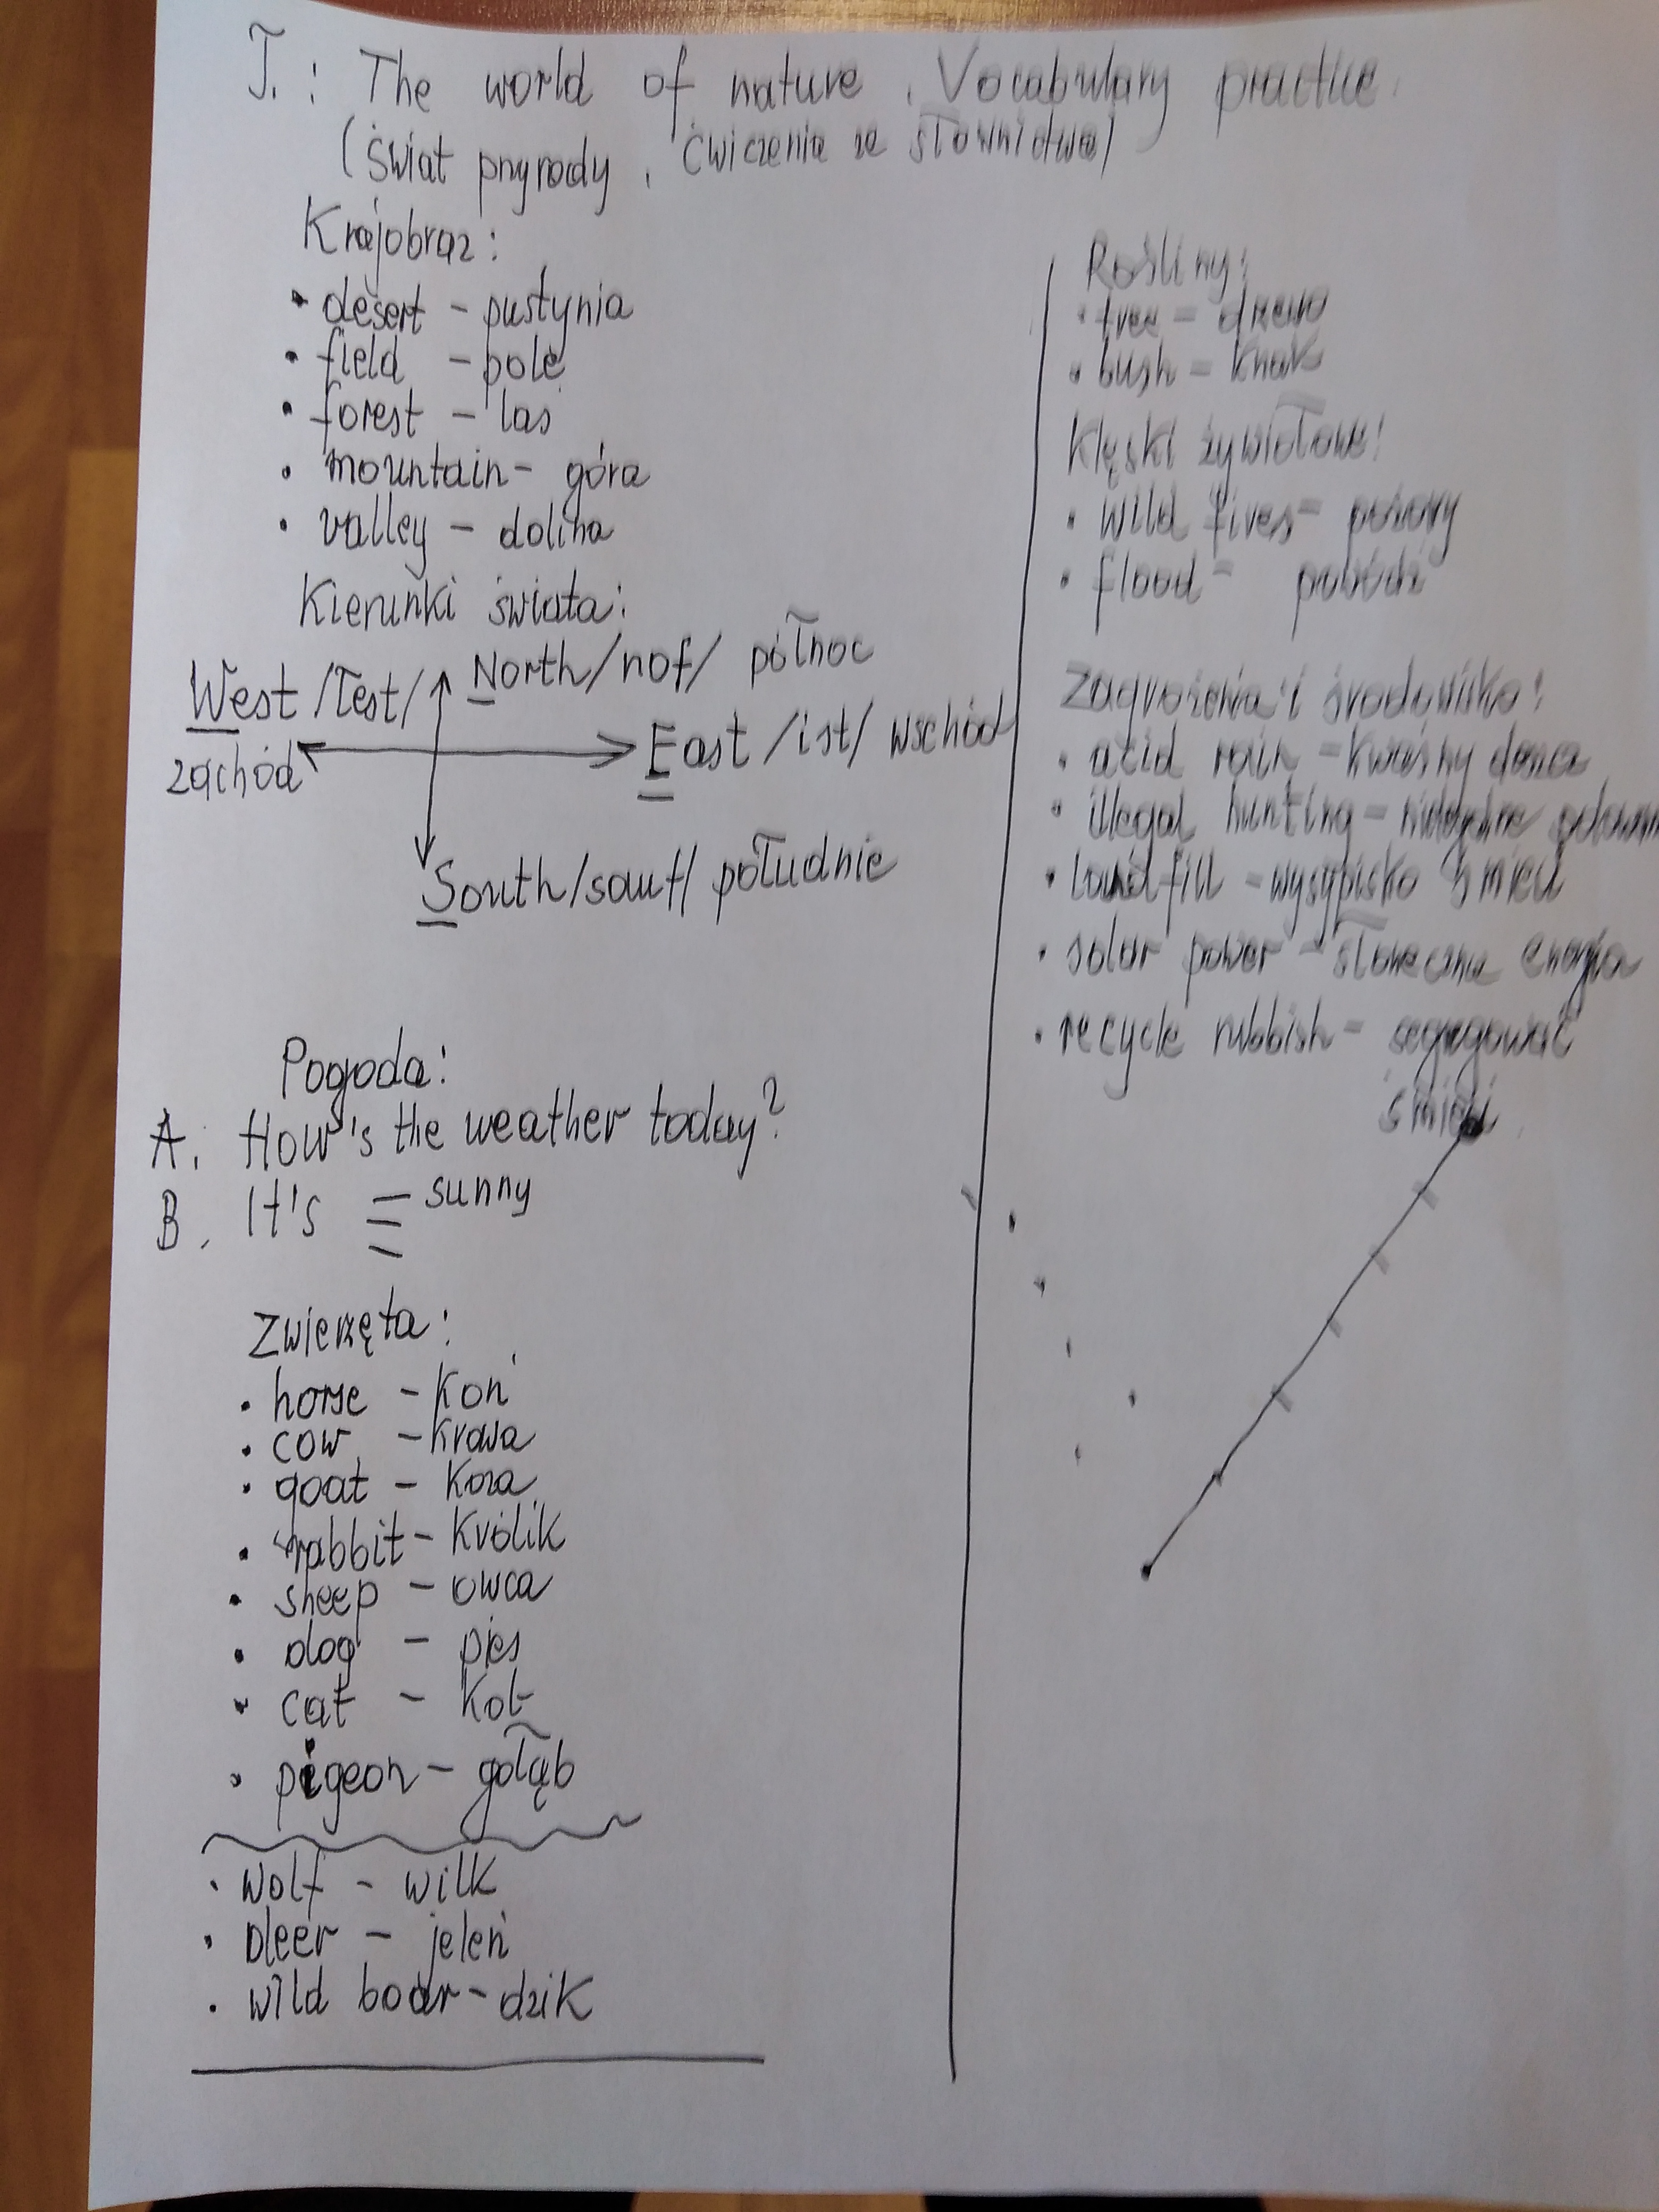 T.: The world of nature. Vocabulary practice.
(Świat przyrody. Ćwiczenia ze słownictwa)
Krajobraz:
• desert – pustynia
• field – pole
• forest – las
• mountain – góra
• valley – dolina
Kierunki świata:
North /nof/ północ
West /łest/
zachód
East /ist/ wschód
South /sauf/ południe
Pogoda:
A. How's the weather today?
B. It's – sunny
Zwierzęta:
• horse – koń
• cow – krowa
• goat – koza
• rabbit – królik
• sheep – owca
• dog – pies
• cat – kot
• pigeon – gołąb
• wolf – wilk
• deer – jeleń
• wild boar – dzik
Rośliny:
• tree – drzewo
• bush – krzak
Klęski żywiołowe:
• wild fires – pożary
• flood – powódź
Zagrożenia i środowisko:
• acid rain – kwaśny deszcz
• illegal hunting – nielegalne polowanie
• landfill – wysypisko śmieci
• solar power – słoneczna energia
• recycle rubbish – segregować
śmieci